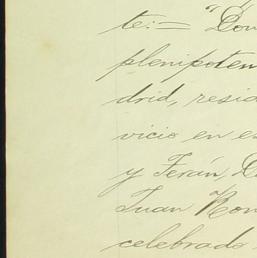 te:= "Don
plenipoten
drid, resid
vicio en es
y Ferán, D
Juan Rom
celebrado